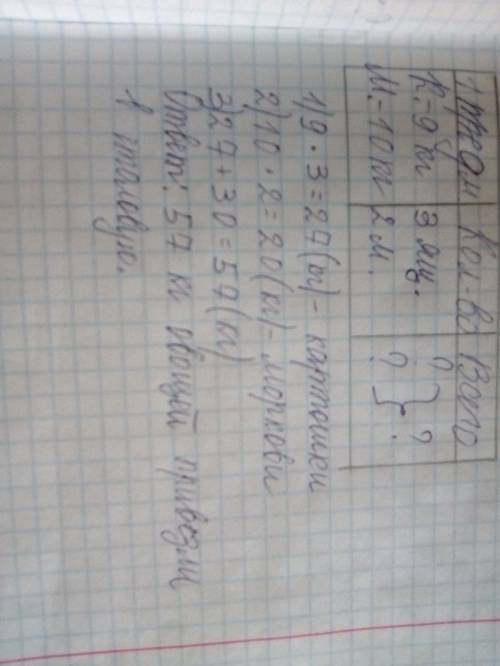 1 предм Кол-во Всего
К.-9 кг 3 ящ. ? } ?
М.-10 кг 2 м. ?
1) 9 · 3 = 27 (кг) - картошки
2) 10 · 2 = 20 (кг) - моркови
3) 27 + 30 = 57 (кг)
Ответ: 57 кг овощей привезли
в столовую.